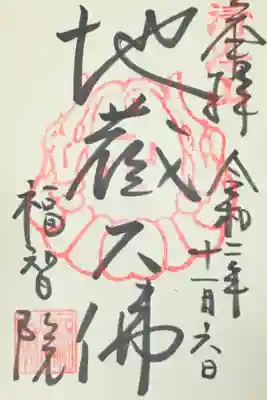 奉拝 令和二年
十一月六日
地蔵大佛
福智院